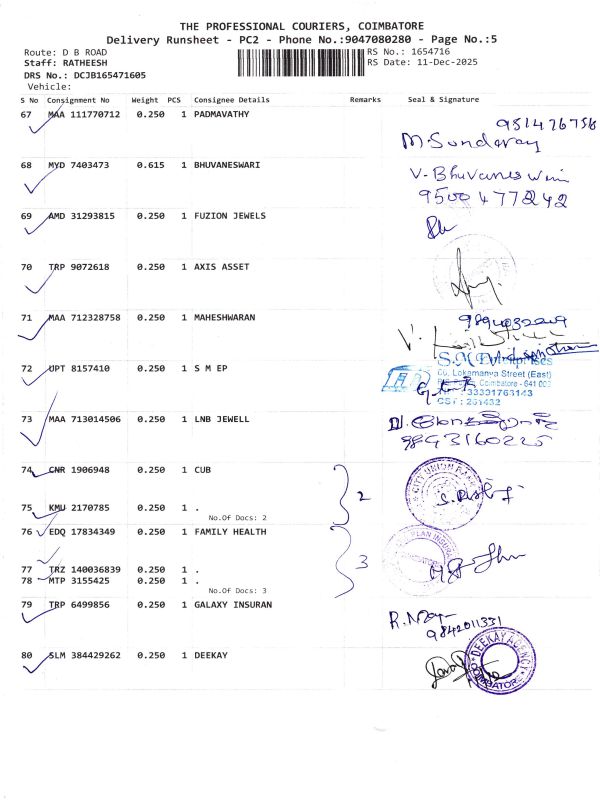 THE PROFESSIONAL COURIERS, COIMBATORE
Delivery Runsheet - PC2 - Phone No.:9047080280 - Page No.:5
Route: D B ROAD
RS No.: 1654716
Staff: RATHEESH
RS Date: 11-Dec-2025
DRS No.: DCJB165471605
Vehicle:
S No Consignment No Weight PCS Consignee Details Remarks Seal & Signature
67 MAA 111770712 0.250 1 PADMAVATHY
M. Sundaray
68 MYD 7403473 0.615 1 BHUVANESWARI
V. Bhuvaneswari
9500477242
69 AMD 31293815 0.250 1 FUZION JEWELS
70 TRP 9072618 0.250 1 AXIS ASSET
71 MAA 712328758 0.250 1 MAHESHWARAN
72 UPT 8157410 0.250 1 S M EP
S.M Enterprises
Lokamanya Street (East)
Coimbatore - 641 002
73 MAA 713014506 0.250 1 LNB JEWELL
9843160225
74 CNR 1906948 0.250 1 CUB
2
CITY UNION BANK
75 KMU 2170785 0.250 1 .
No.Of Docs: 2
76 EDQ 17834349 0.250 1 FAMILY HEALTH
3
77 TRZ 140036839 0.250 1 .
78 MTP 3155425 0.250 1 .
No.Of Docs: 3
79 TRP 6499856 0.250 1 GALAXY INSURAN
9842011331
80 SLM 384429262 0.250 1 DEEKAY
DEEKAY AGENCY
COIMBATORE